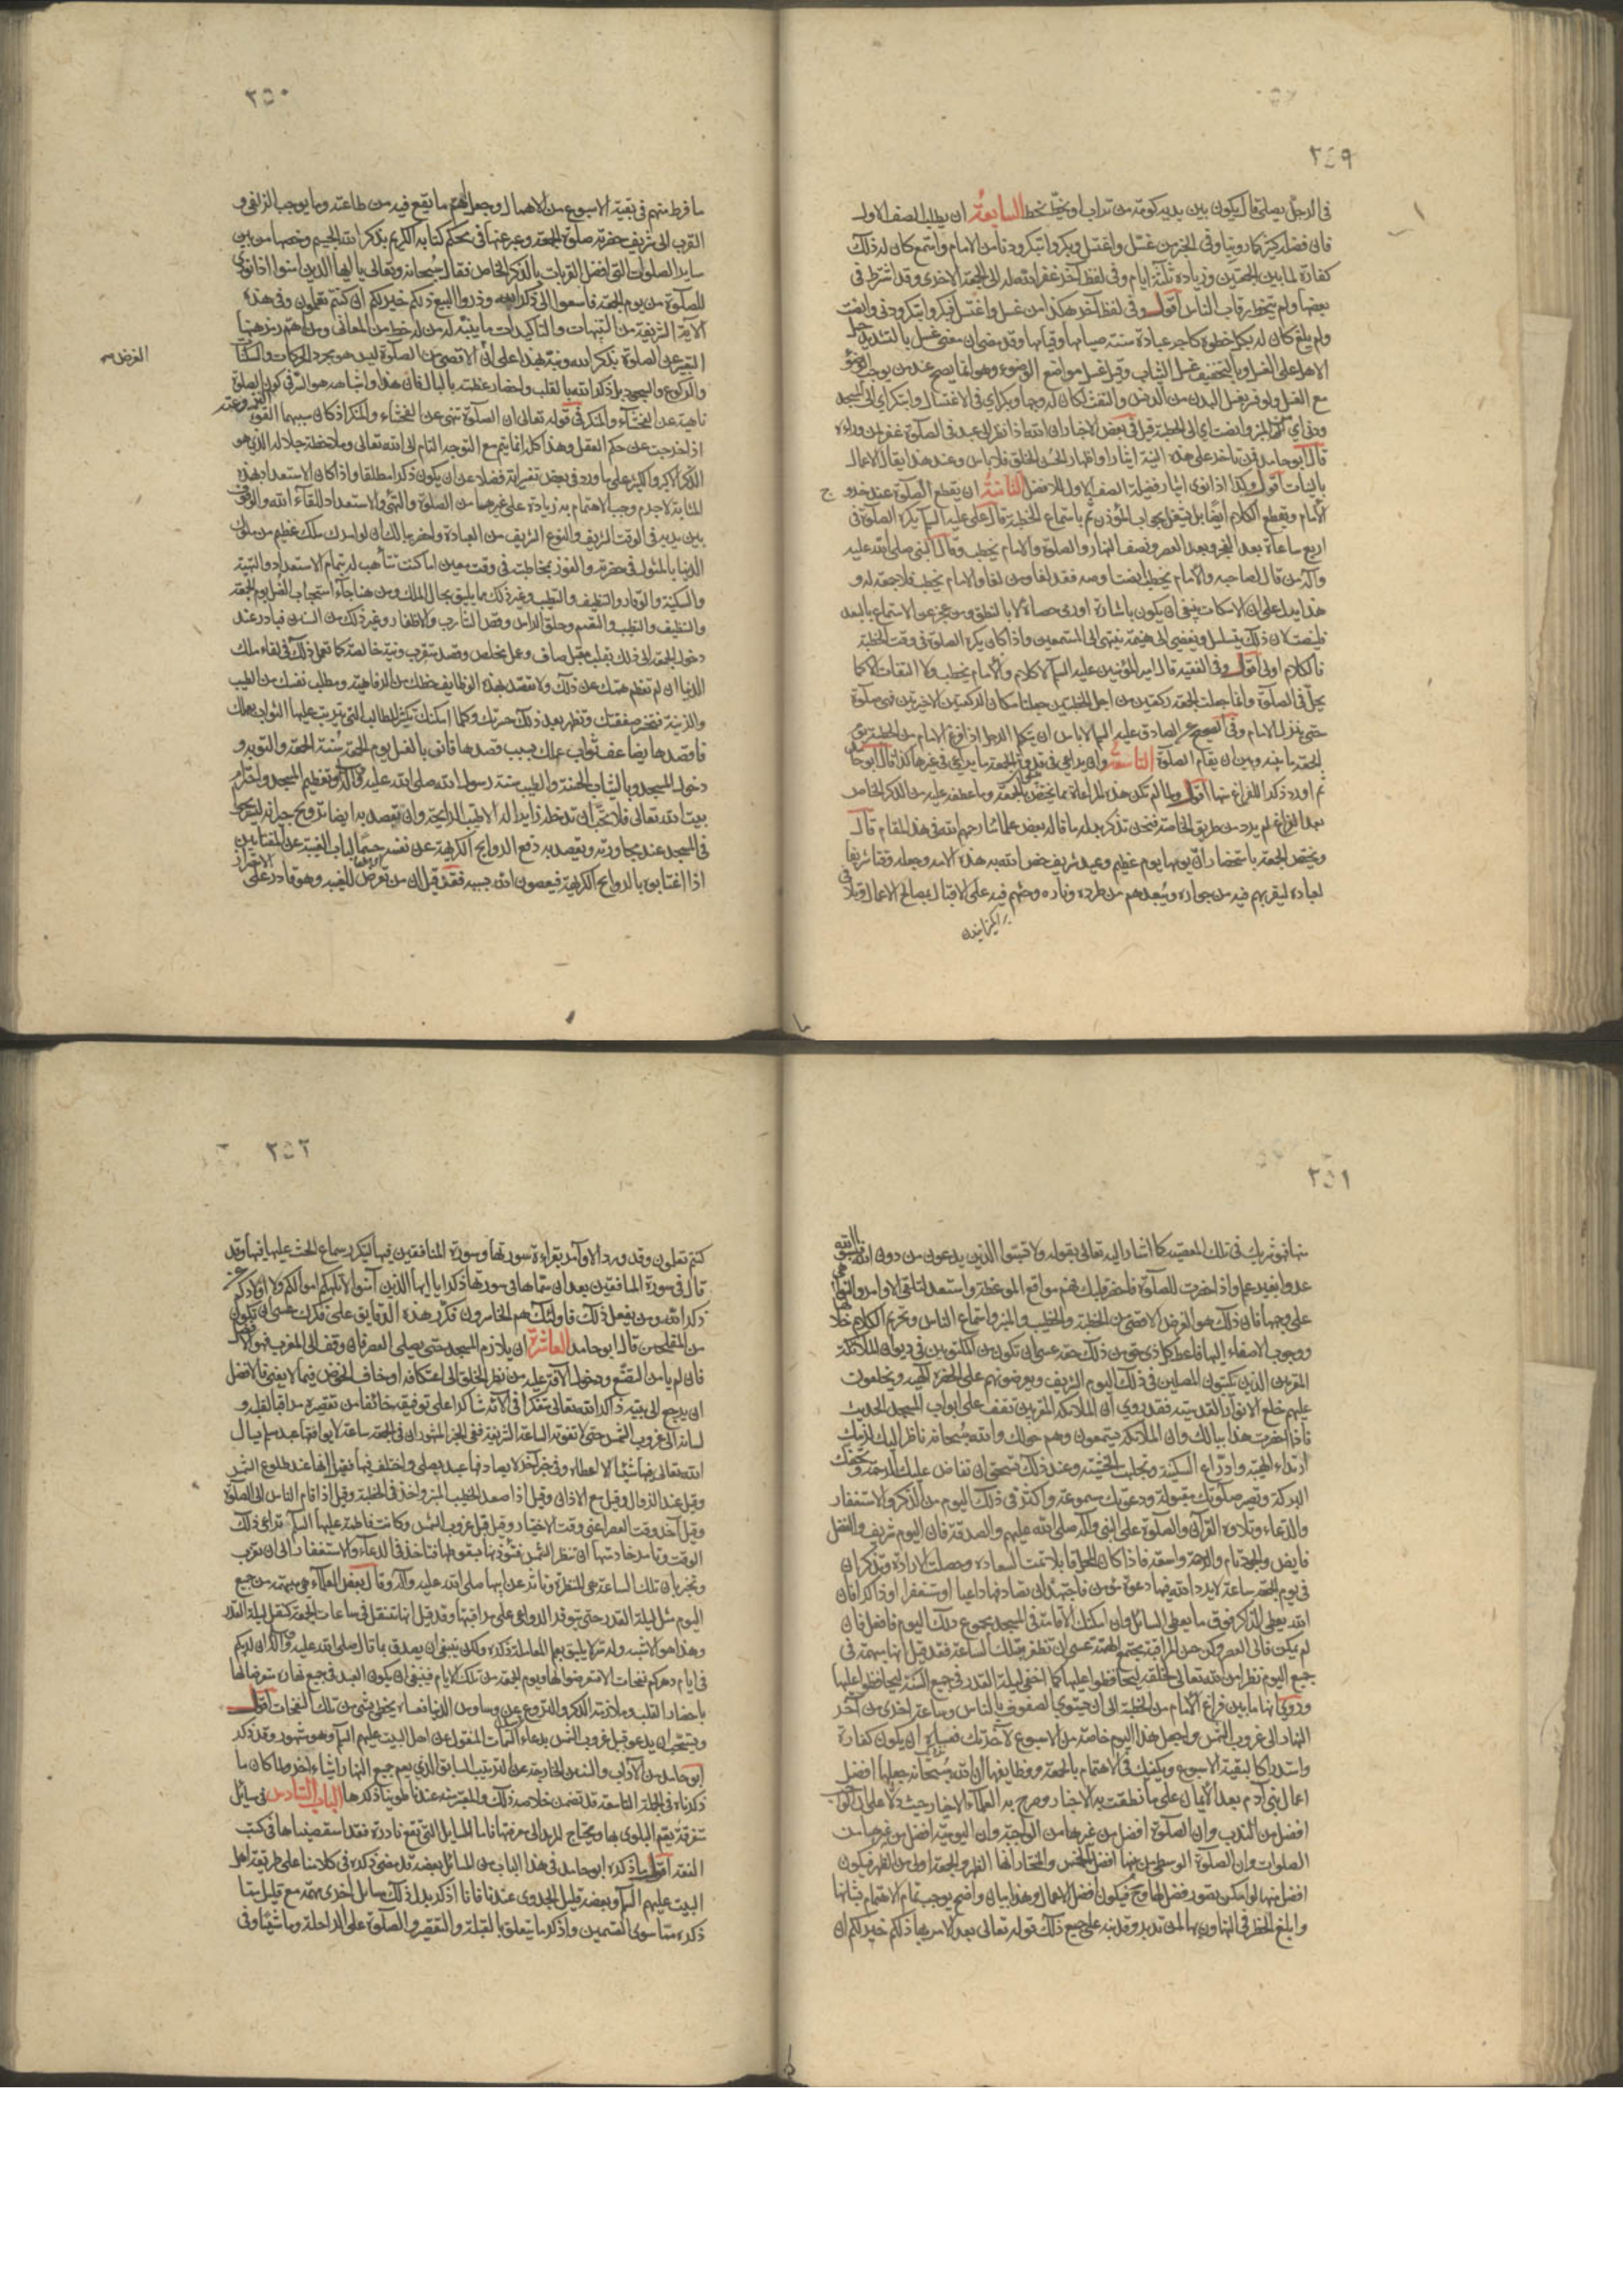 ٢٤٩
في الرجل يصلي قال يكون بين يديه كومة من تراب او يخط بخط السابعة ان يطلب الصف الاول
فان فضله كثير كما رويناه وفي الخبر من غسل واغتسل وبكر وابتكر ودنا من الامام واستمع كان له ذلك
كفارة لما بين الجمعتين وزيادة ثلثة ايام وفي لفظ آخر غفر الله له الى الجمعة الاخرى وقد اشترط في
بعضها ولم يتخط رقاب الناس اقول وفي لفظ آخر هكذا من غسل واغتسل فبكر وابتكر ودنى وانصت
ولم يلغ كان له بكل خطوة كاجر عبادة سنة صيامها وقيامها وقد مضى ان معنى غسل بالتشديد حمل
الاهل على الغسل وبالتخفيف غسل الثياب وقيل غسل مواضع الوضوء وهو انما يصح عند من يوجب الوضوء
مع الغسل ولو فسر بغسل البدن من الدرن والتفث لكان له وجها وبكر اي في الاغتسال وابتكر اي الى المسجد
ودنى اي من المنبر وانصت اي الى الخطبة قيل في بعض الاخبار ان الله اذا نظر الى عبد في الصلوة غفر لمن وراءه
قال ابو حامد فمن تاخر على هذه النية ايثارا واظهارا لحسن الخلق فلا باس وعند هذا يقال الاعمال
بالنيات اقول وكذا اذا نوى ايثار فضيلة الصف الاول للافضل الثامنة ان يقطع الصلوة عند خروج
الامام ويقطع الكلام ايضا بل يشتغل بجواب المؤذن ثم باستماع الخطبة قال علي عليه السلم يكره الصلوة في
اربع ساعات بعد الفجر وبعد العصر ونصف النهار والصلوة والامام يخطب وقال النبي صلى الله عليه
وآله من قال لصاحبه والامام يخطب انصت او صه فقد لغا ومن لغا والامام يخطب فلا جمعة له و
هذا يدل على ان الاسكات ينبغي ان يكون باشارة او رمي حصاة لا بالنطق ومن عجز عن الاستماع بالبعد
فلينصت لان ذلك يتسلسل ويفضي الى هينمة ينتهي الى المستمعين واذا كان يكره الصلوة في وقت الخطبة
فالكلام اولى اقول وفي الفقيه قال امير المؤمنين عليه السلم لا كلام والامام يخطب ولا التفات الا كما
يحل في الصلوة وانما جعلت الجمعة ركعتين من اجل الخطبتين جعلتا مكان الركعتين الاخيرتين فهي صلوة
حتى ينزل الامام وفي الصحيح عن الصادق عليه السلم لا باس ان يتكلم الرجل اذا فرغ الامام من الخطبة يوم
الجمعة ما بينه وبين ان يقام الصلوة التاسعة وان يراعي في قدوة الجمعة ما يراعي في غيرها كذا قال ابو حامد
ثم اورد ذكر الفراغ منها اقول ولما لم تكن هذه المراعاة مما يختص بالجمعة وما عطفه عليه من الذكر الخاص
بعد الفراغ لم يرد من طريق الخاصة فنحن نذكر بدله ما قاله بعض علمائنا رحمهم الله في هذا المقام قال
ويختص الجمعة باستحضار ان يومها يوم عظيم وعيد شريف خص الله به هذه الامة وجعله وقتا شريفا
لعباده ليقربهم فيه من جواره ويبعدهم من طرده وناره وحثهم فيه على الاقبال بصالح الاعمال وتلافي
٢٥٠
ما فرط منهم في بقية الاسبوع من الاهمال وجعل اهم ما يقع فيه من طاعته وما يوجب الزلفى و
القرب الى شريف حضرته صلوة الجمعة وعبر عنها في محكم كتابه الكريم بذكر الله الجسيم وخصها من بين
ساير الصلوات التي افضل القربات بالذكر الخاص فقال سبحانه وتعالى يا ايها الذين آمنوا اذا نودي
للصلوة من يوم الجمعة فاسعوا الى ذكر الله وذروا البيع ذلكم خير لكم ان كنتم تعلمون وفي هذه
الآية الشريفة من التنبيهات والتاكيدات ما يتنبه له من له حظ من المعاني ومن اهم رمزها
التعبير عن الصلوة بذكر الله ونبه بهذا على ان الاقصى من الصلوة ليس هو مجرد الحركات والسكنات
الغرض
والركوع والسجود بل ذكر الله بالقلب واحضار عظمته بالبال فان هذا واشباهه هو السر في كون الصلوة
ناهية عن الفحشاء والمنكر في قوله تعالى ان الصلوة تنهى عن الفحشاء والمنكر اذ كان سببهما القوة
اذا خرجت عن حكم العقل وهذا كله انما يتم مع التوجه التام الى الله تعالى وملاحظة جلاله الذي هو
الذكر الاكبر والكثير على ما ورد في بعض تفسيراته فضلا عن ان يكون ذكرا مطلقا واذا كان الاستعداد بهذه
المثابة لا جرم وجب الاهتمام به زيادة على غيرها من الصلوة والتهيؤ والاستعداد للقاء الله والوقوف
بين يديه في الوقت الشريف والنوع الشريف من العبادة واحضر ببالك ان لو امرك ملك عظيم من ملوك
الدنيا بالمثول في حضرته والفوز بمخاطبته في وقت معين اما كنت تتأهب له بتمام الاستعداد والتهيئة
والسكينة والوقار والتنظيف والتطيب وغير ذلك مما يليق بحال الملك ومن هنا جاء استحباب الغسل يوم الجمعة
والتنظيف والتطيب والتعمم وحلق الراس وقص الشارب والاظفار وغير ذلك من السنن فبادر عند
دخول الجمعة الى ذلك بقلب مقبل صاف وعمل مخلص وقصد متقرب ونية خالصة كما تعمل ذلك في لقاء ملك
الدنيا ان لم تعظم همتك عن ذلك ولا تقصد بهذه الوظايف حظك من الرفاهية ومطلب نفسك من الطيب
والزينة فتخسر صفقتك وتظهر بعد ذلك حسرتك وكلما امكنك تكثير المطالب التي يترتب عليها الثواب بعملك
فاقصدها يضاعف ثواب عملك بسبب قصدها فانو بالغسل يوم الجمعة سنة الجمعة والتوبة و
دخول المسجد وبالثياب الحسنة والطيب سنة رسول الله صلى الله عليه وآله وتعظيم المسجد واحترام
بيت الله تعالى فلا تحب ان تدخله زايرا له الا طيب الرايحة وان تقصد به ايضا ترويح جيرانه ليستريحوا
في المسجد عند مجاورته وتقصد به دفع الروايح الكريهة عن نفسه حسما لباب الغيبة عن المغتابين
اذا اغتابوه بالروايح الكريهة فيعصون الله بسببه فقد قيل ان من تعرض للغيبة وهو قادر على الاحتراز
٢٥١
منها فهو شريك في تلك المعصية كما اشار اليه تعالى بقوله ولا تسبوا الذين يدعون من دون الله فيسبوا الله
عدوا بغير علم واذا حضرت للصلوة فاحضر قلبك فهم مواقع الموعظة واستعد لتلقي الاوامر والنواهي
على وجهها فان ذلك هو الغرض الاقصى من الخطبة والخطيب والمنبر واستماع الناس وتحريم الكلام خلالها
ووجوب الاصغاء اليها فاعط كل ذي حق من ذلك حقه عسى ان تكون من المكتوبين في ديوان الملائكة
المقربين الذين يكتبون المصلين في ذلك اليوم الشريف ويعرضونهم على الحضرة الالهية ويخلعون
عليهم خلع الانوار القدسية فقد روي ان الملائكة المقربين تقف على ابواب المسجد الحديث
فاذا احضرت هذا ببالك وان الملائكة يستمعون وهم حولك والله سبحانه ناظر اليك لزمك
ارتداء الهيبة وادراع السكينة وتجلبب الخشية وعند ذلك تستحق ان تفاض عليك الرحمة وتحفك
البركة وتصير صلوتك مقبولة ودعوتك مسموعة واكثر في ذلك اليوم من الذكر والاستغفار
والدعاء وتلاوة القرآن والصلوة على النبي وآله صلى الله عليهم والصدقة فان اليوم شريف والفضل
فايض والجود تام والرحمة واسعة فاذا كان المحل قابلا تمت السعادة وحصلت الارادة وتذكر ان
في يوم الجمعة ساعة لا يرد الله فيها دعوة مؤمن فاجتهد ان تصادفها داعيا او مستغفرا او ذاكرا فان
الله يعطي الذاكر فوق ما يعطي السائل وان امكنك الاقامة في المسجد مجموع ذلك اليوم فافعل فان
لم يكن فالى العصر وكن حسن المراقبة مجتمع الهمة عسى ان تظفر بتلك الساعة فقد قيل انها مبهمة في
جميع اليوم نظرا من الله تعالى لخلقه ليحافظوا عليها كما اخفى ليلة القدر في جميع السنة ليحافظوا عليها
وروي انها ما بين فراغ الامام من الخطبة الى ان يستوي الصفوف بالناس وساعة اخرى من آخر
النهار الى غروب الشمس واجعل هذا اليوم خاصة من الاسبوع لآخرتك فعساه ان يكون كفارة
واستدراكا لبقية الاسبوع ويكفيك في الاهتمام بالجمعة ووظايفها ان الله سبحانه جعلها افضل
اعمال بني آدم بعد الايمان على ما نطقت به الاخبار وصرح به العلماء الاخيار حيث دلا على ان الواجب
افضل من الندب وان الصلوة افضل من غيرها من الواجبة وان اليومية افضل من غيرها من
الصلوات وان الصلوة الوسطى من بينها افضل الخمس والمختار انها الظهر والجمعة اولى من الظهر فيكون
افضل منها لو امكن تصور فضل لها وح فيكون افضل الاعمال وهذا بيان واضح يوجب تمام الاهتمام بشانها
وابلغ الحظر في التهاون بها لمن تدبر وقد نبه على جميع ذلك قوله تعالى بعد الامر بها ذلكم خير لكم ان
٢٥٢
كنتم تعلمون وقد ورد الاوامر بقراءة سورتها وسورة المنافقين فيها ليتكرر سماع الحث عليها فيها وقد
قال في سورة المنافقين بعد ان سماها في سورتها ذكرا يا ايها الذين آمنوا لا تلهكم اموالكم ولا اولادكم عن
ذكر الله ومن يفعل ذلك فاولئك هم الخاسرون فكرر هذه الدقايق على فكرك عسى ان تكون
من المفلحين قال ابو حامد العاشرة ان يلازم المسجد حتى يصلي العصر فان وقف الى المغرب فهو الافضل
فان لم يامن التصنع ودخول الآفة عليه من نظر الخلق الى اعتكافه او خاف الخوض فيما لا يعني فالافضل
ان يرجع الى بيته ذاكرا لله تعالى متفكرا في آلائه شاكرا على توفيقه خائفا من تقصيره مراقبا لقلبه و
لسانه الى غروب الشمس حتى لا تفوته الساعة الشريفة ففي الخبر المشهور ان في الجمعة ساعة لا يوافقها عبد مسلم يسال
الله تعالى فيها شيئا الا اعطاه وفي خبر آخر لا يصادفها عبد يصلي واختلف فيها فقيل انها عند طلوع الشمس
وقيل عند الزوال وقيل مع الاذان وقيل اذا صعد الخطيب المنبر واخذ في الخطبة وقيل اذا قام الناس الى الصلوة
وقيل آخر وقت العصر اعني وقت الاختيار وقيل قبل غروب الشمس وكانت فاطمة عليها السلم تراعي ذلك
الوقت وتامر خادمتها ان تنظر الشمس فتؤذنها بسقوطها فتاخذ في الدعاء والاستغفار الى ان تغرب
وتخبر بان تلك الساعة هي المنتظرة وتاثره عن ابيها صلى الله عليه وآله وقال بعض العلماء هي مبهمة من جميع
اليوم مثل ليلة القدر حتى تتوفر الدواعي على مراقبتها وقد قيل انها تنتقل في ساعات الجمعة كتنقل ليلة القدر
وهذا هو الاشبه وله سر لا يليق بعلم المعاملة ذكره ولكن ينبغي ان يصدق بما قال صلى الله عليه وآله ان لربكم
في ايام دهركم نفحات الا فتعرضوا لها ويوم الجمعة من تلك الايام فينبغي ان يكون العبد في جميع نهاره متعرضا لها
باحضار القلب وملازمة الذكر والنزوع عن وساوس الدنيا فعساه يحظى بشيء من تلك النفحات اقول
ويستحب ان يدعو قبل غروب الشمس بدعاء السمات المنقول عن اهل البيت عليهم السلم وهو مشهور وقد ذكر
ابو حامد من الآداب والسنن الخارجة عن الترتيب السابق الذي يعم جميع النهار اشياء اخر ولما كان ما
ذكرناه في الجملة التاسعة قد تضمن خلاصة ذلك والمعتبر منه عندنا طوينا ذكرها الباب السادس في مسائل
متفرقة يعم البلوى بها ويحتاج المريد الى معرفتها فاما المسايل التي تقع نادرة فقد استقصيناها في كتب
الفقه اقول ما ذكره ابو حامد في هذا الباب من المسائل بعضه قد مضى ذكره في كلامنا على طريقة اهل
البيت عليهم السلم وبعضه قليل الجدوى عندنا فانا اذكر بدل ذلك مسائل اخرى مهمة مع قليل مما
ذكره مما سوى القسمين واذكر ما يتعلق بالقبلة والتقصير والصلوة على الراحلة وماشيا وفي